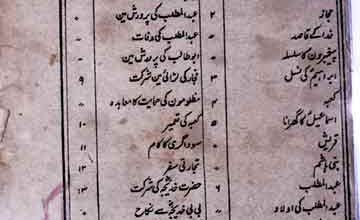 حجاز ۲ عبد المطلب کی پرورش مین ۰
خدا کے قاصد ۰ عبد المطلب کی وفات ۰
پیغمبرون کا سلسلہ ۰ ابوطالب کی پرورش مین ۰
ابراہیم کی نسل ۳ فجار کی لڑائی مین شرکت ۹
کعبہ ۴ مظلومون کی حمایت کا معاہدہ ۰
اسماعیلؑ کا گھرانا ۵ کعبہ کی تعمیر ۱۰
قریش ۰ سوداگری کا کام ۱۱
بنی ہاشم ۰ تجارتی سفر ۰
عبد المطلب ۶ حضرت خدیجہؓ کی شرکت ۱۳
عبد المطلب کی اولاد ۰ بی بی خدیجہؓ سے نکاح ۰